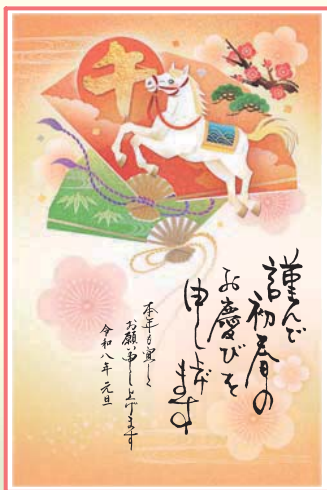 午
謹んで
初春の
お慶びを
申し上げ
ます
本年も宜しく
お願い申し上げます
令和八年 元旦